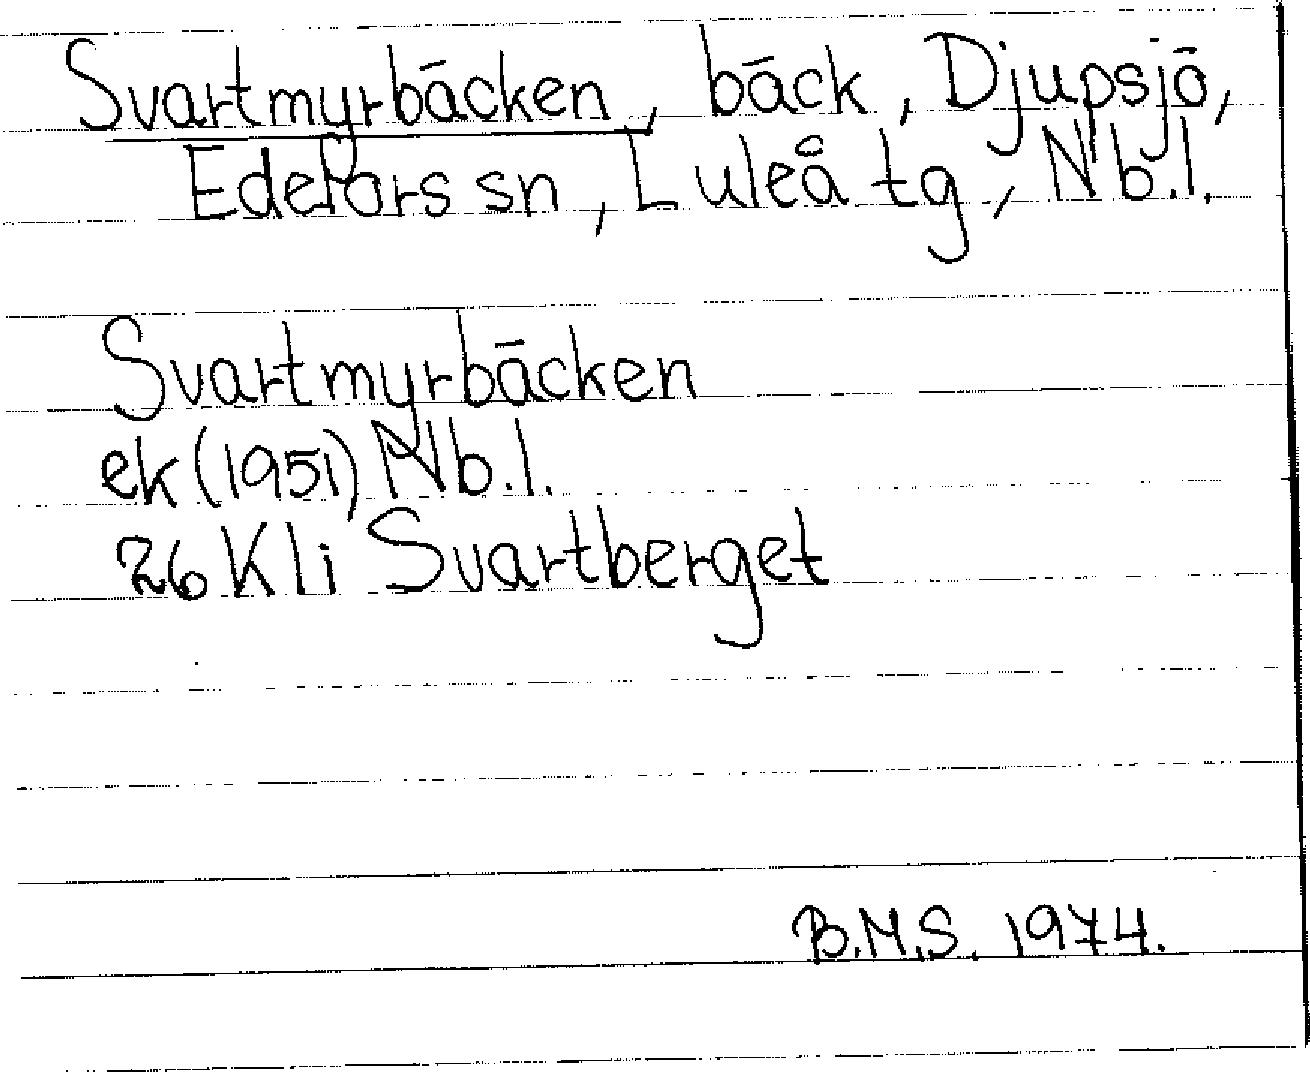 Svartmyrbäcken, bäck, Djupsjö,
Edefors sn, Luleå tg, Nb.l.
Svartmyrbäcken
ek (1951) Nb.l.
26 K l i Svartberget
B.M.S. 1974.